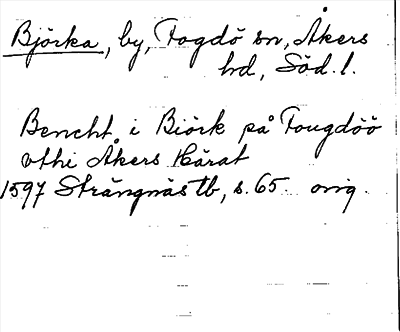 Björka, by, Fogdö sn, Åkers
hd, Söd. l.
Bencht i Biörk på Fougdöö
vthi Åkers Härat
1597 Strängnäs tb, s. 65. orig.